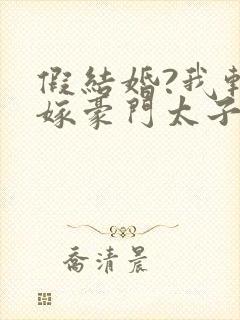 假結婚?我轉
嫁豪門太子
喬清晨